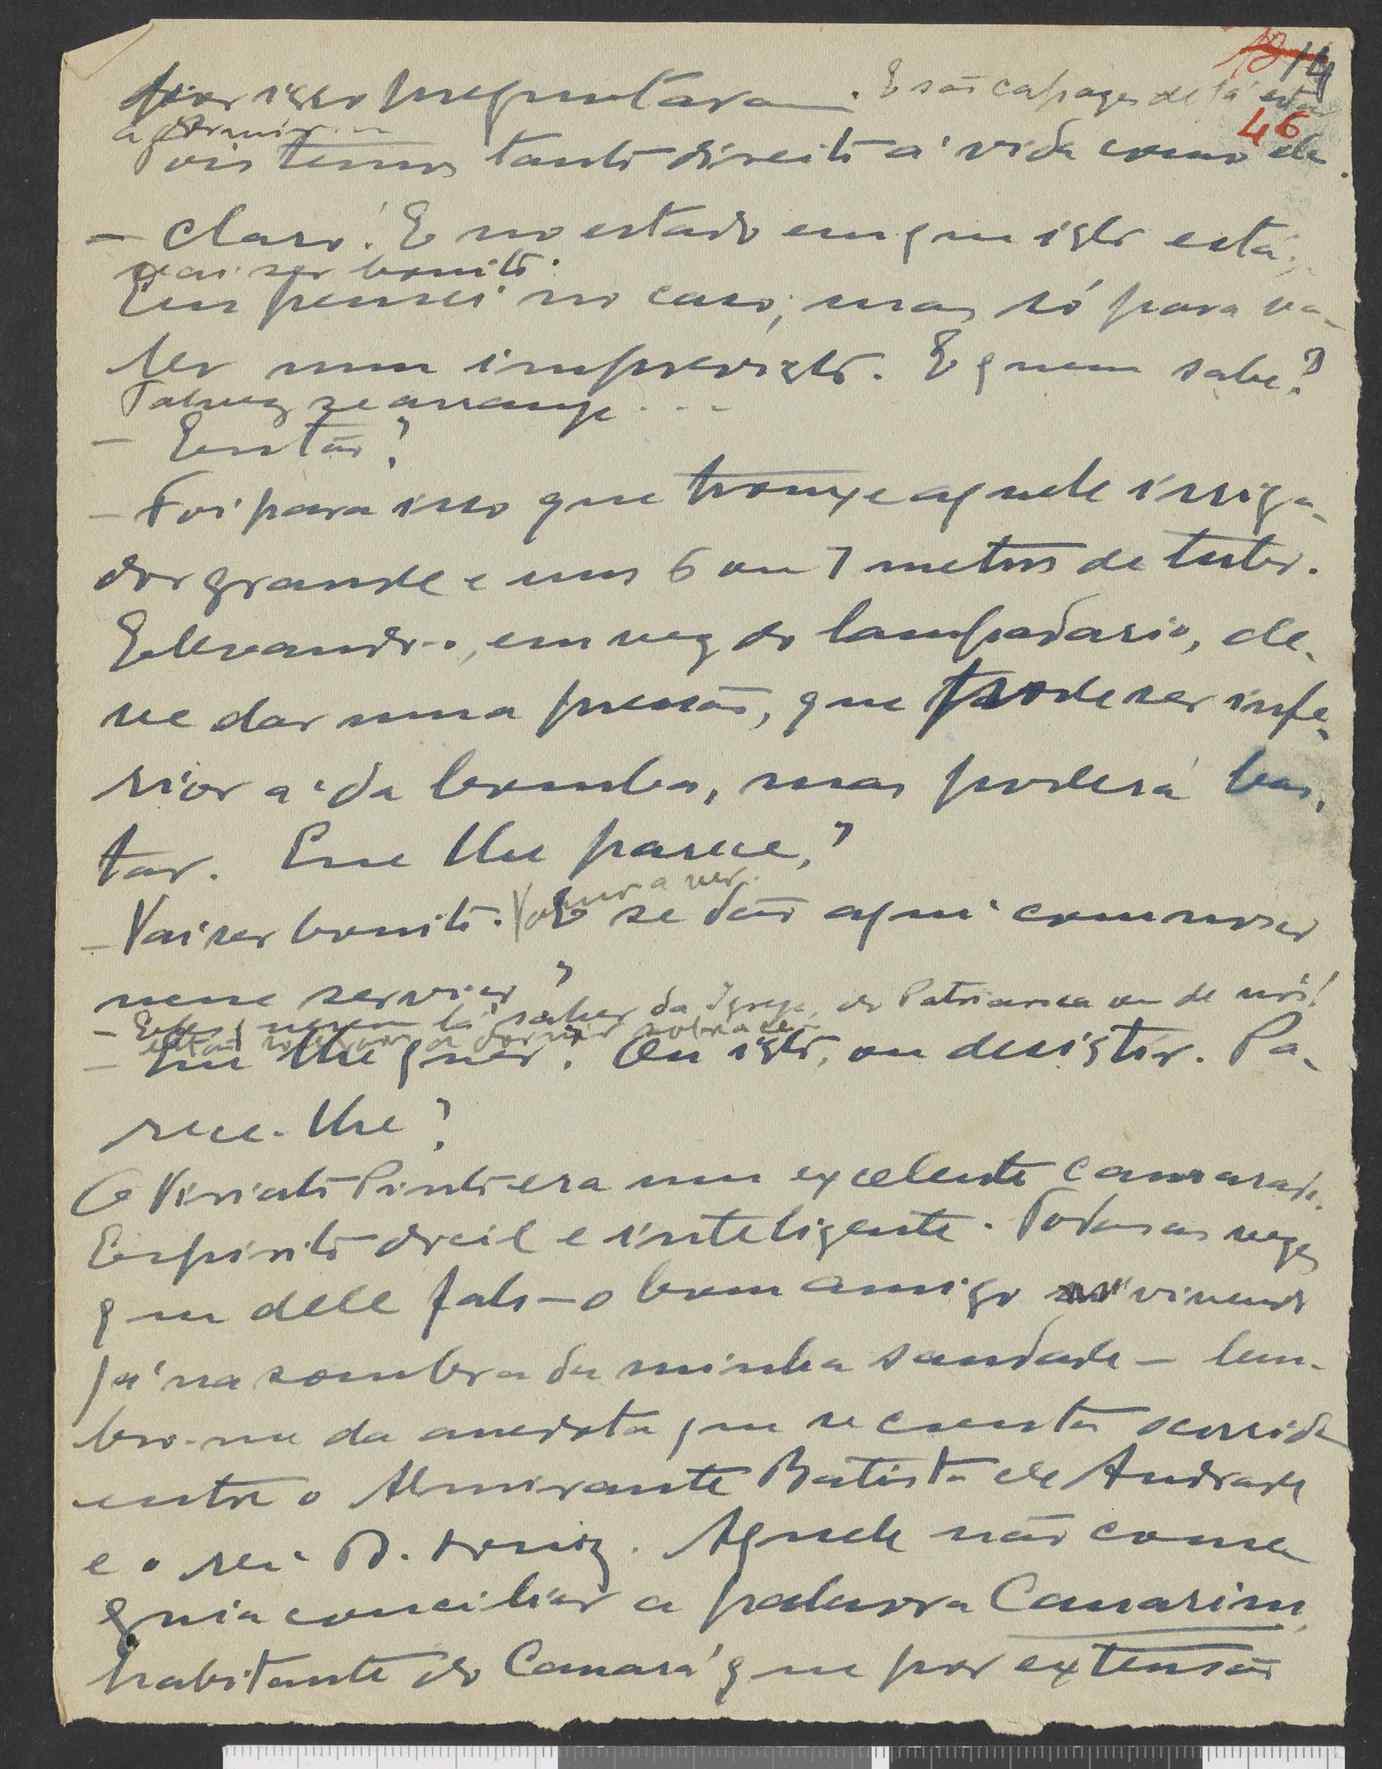 14
46
por isso preguntaram. E são capazes de lá estar
a dormir...
Pois temos tanto direito á vida como ele.
— Claro! E no estado em que isto está,
vai ser bonito.
Eu pensei no caso; mas só para va-
ler num imprevisto. E quem sabe?
Talvez se arranje...
— Então?
— Foi para isso que trouxe aquele irriga-
dor grande e uns 6 ou 7 metros de tubo.
Elevando-o, em vez do lampadario, de-
ve dar uma pressão, que pode ser infe-
rior a' da bomba, mas poderá bas-
tar. Que lhe parece?
— Vai ser bonito. Vamos a ver. E se dão aqui comnosco
nesse serviço?
— Eles querem lá saber da Igreja, do Patriarca ou de nós!
estão a dormir sobre
— Que lhe quer? Ou isto, ou desistir. Pa-
rece-lhe?
O Viriato Pinto era um excelente camarada.
Espirito docil e inteligente. Todas as vezes
que dele falo — o bom amigo vivendo
já na sombra da minha saudade — lem-
bro-me da anedota que se conta ocorrida
entre o Almirante Batista de Andrade
e o rei D. Luiz. Aquele não conse
guia conciliar a palavra Canarim,
habitante do Canará que por extensão